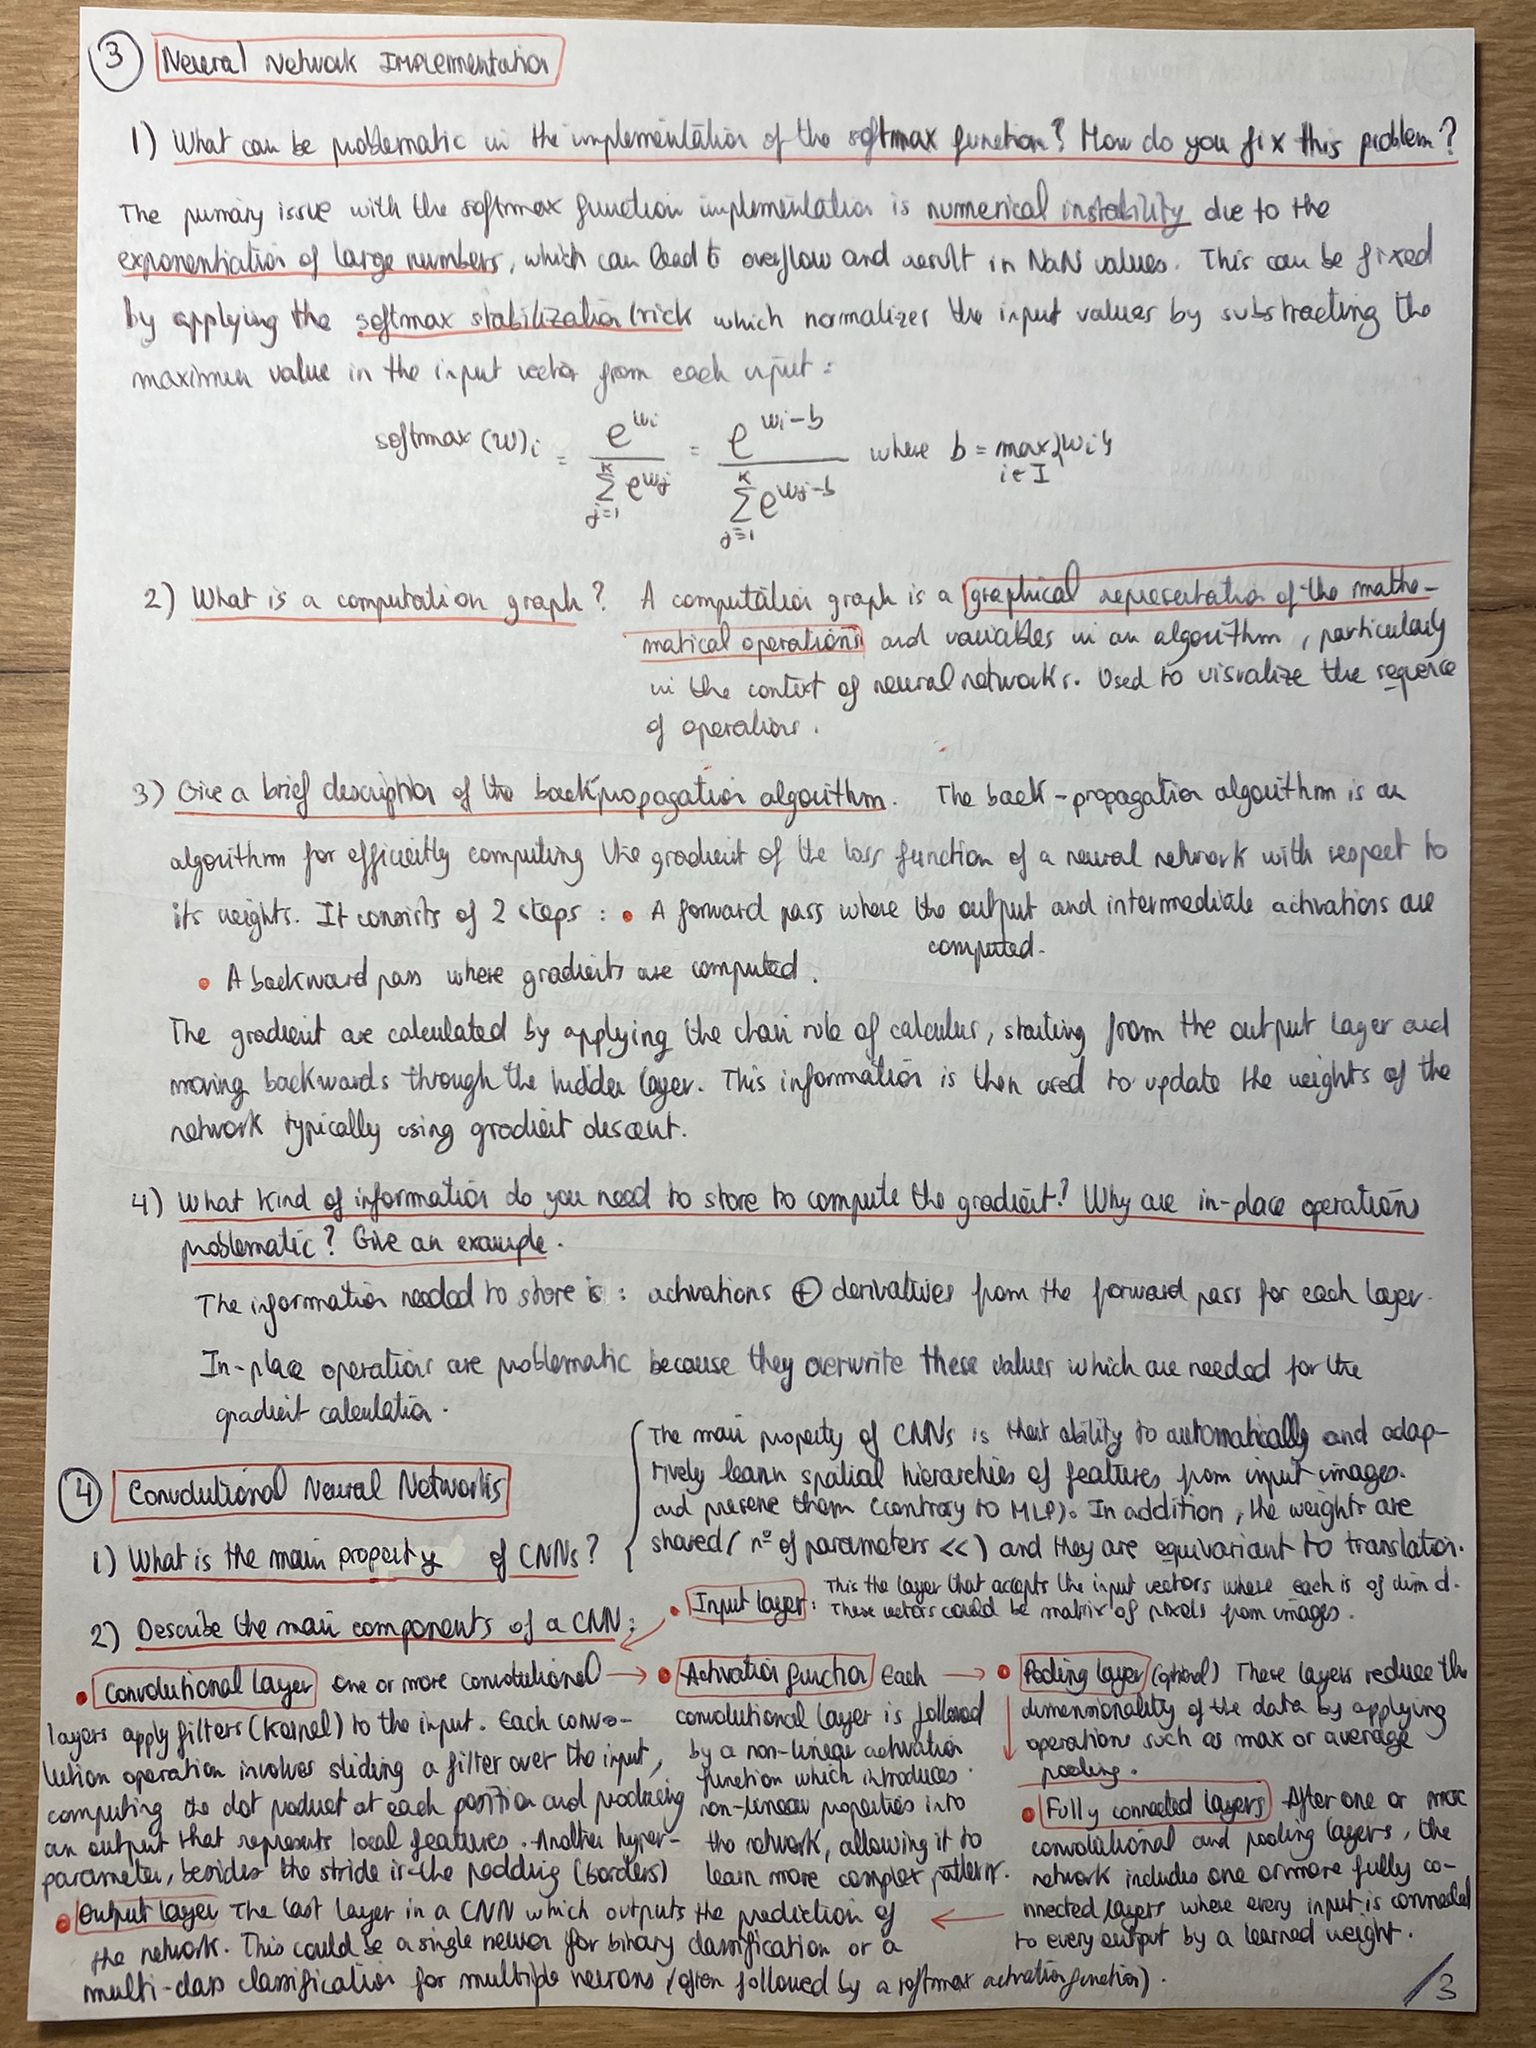 3 Neural Network Implementation
1) What can be problematic in the implementation of the softmax function? How do you fix this problem?
The primary issue with the softmax function implementation is numerical instability due to the
exponentiation of large numbers, which can lead to overflow and result in NaN values. This can be fixed
by applying the softmax stabilization trick which normalizes the input values by substracting the
maximum value in the input vector from each input:
softmax (w)i = e^{wi} / Σ_{j=1}^{K} e^{wj} = e^{wi-b} / Σ_{j=1}^{K} e^{wj-b} where b = max_{i∈I} {wi}
2) What is a computation graph? A computation graph is a graphical representation of the mathe-
matical operations and variables in an algorithm, particularly
in the context of neural networks. Used to visualize the sequence
of operations.
3) Give a brief description of the backpropagation algorithm. The back-propagation algorithm is an
algorithm for efficiently computing the gradient of the loss function of a neural network with respect to
its weights. It consists of 2 steps: • A forward pass where the output and intermediate activations are
computed.
• A backward pass where gradients are computed.
The gradient are calculated by applying the chain rule of calculus, starting from the output layer and
moving backwards through the hidden layer. This information is then used to update the weights of the
network typically using gradient descent.
4) What kind of information do you need to store to compute the gradient? Why are in-place operations
problematic? Give an example.
The information needed to store is: activations ⊕ derivatives from the forward pass for each layer.
In-place operations are problematic because they overwrite these values which are needed for the
gradient calculation.
4 Convolutional Neural Networks
1) What is the main property of CNNs?
The main property of CNNs is their ability to automatically and adap-
tively learn spatial hierarchies of features from input images.
and preserve them (contrary to MLP). In addition, the weights are
shared (nº of parameters <<) and they are equivariant to translation.
2) Describe the main components of a CNN:
• Input layer: This the layer that accepts the input vectors where each is of dim d.
These vectors could be matrix of pixels from images.
• Convolutional Layer One or more convolutional
layers apply filters (kernel) to the input. Each convo-
lution operation involves sliding a filter over the input,
computing the dot product at each position and producing
an output that represents local features. Another hyper-
parameter, besides the stride is the padding (borders)
• Activation function Each
convolutional layer is followed
by a non-linear activation
function which introduces
non-linear properties into
the network, allowing it to
learn more complex patterns.
• Pooling layer (optional) These layers reduce the
dimensionality of the data by applying
operations such as max or average
pooling.
• Fully connected layers After one or more
convolutional and pooling layers, the
network includes one or more fully co-
nnected layers where every input is connected
to every output by a learned weight.
• Output layer The last layer in a CNN which outputs the prediction of
the network. This could be a single neuron for binary classification or a
multi-class classification for multiple neurons (often followed by a softmax activation function).
/3